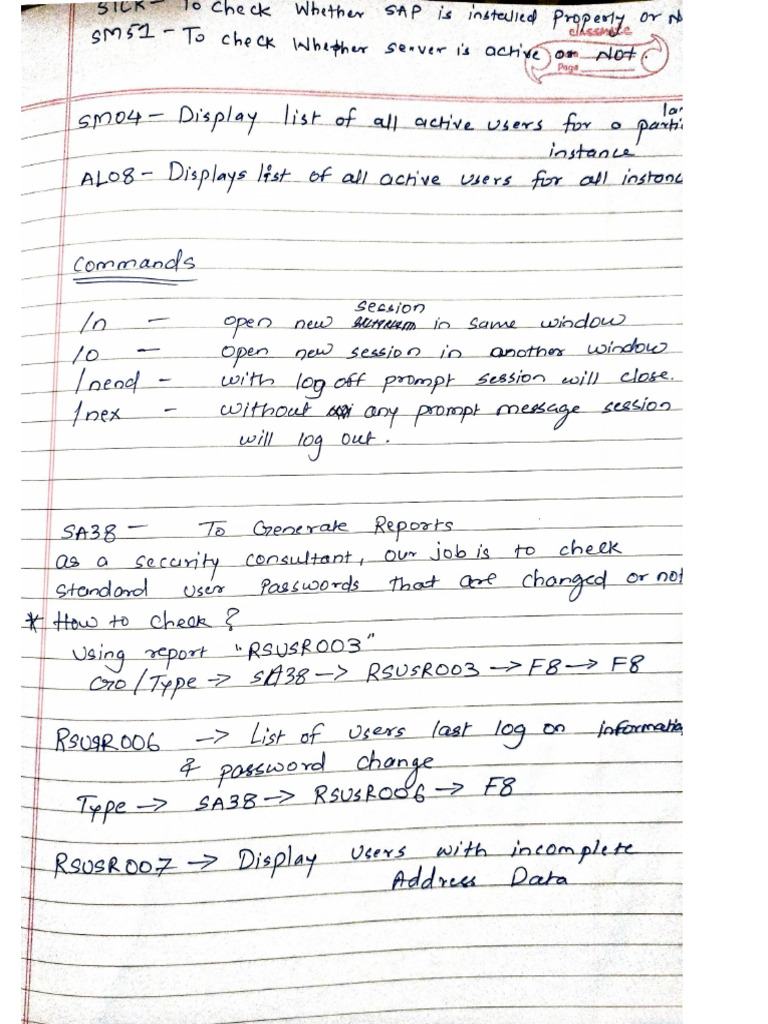 SICK - To check Whether SAP is installed Properly or N
SM51 - To check Whether server is active or Not.
classmate
Page
SM04 - Display list of all active users for a particular
instance
AL08 - Displays list of all active users for all instanc
Commands
/n - open new session in same window
/o - open new session in another window
/nend - with log off prompt session will close.
/nex - without any prompt message session
will log out.
SA38 - To Generate Reports
as a security consultant, our job is to check
standard user passwords that are changed or not
* How to check?
Using report "RSUSR003"
Go/Type → SA38 → RSUSR003 → F8 → F8
RSUSR006 → List of users last log on informatio
& password change
Type → SA38 → RSUSR006 → F8
RSUSR007 → Display users with incomplete
Address Data